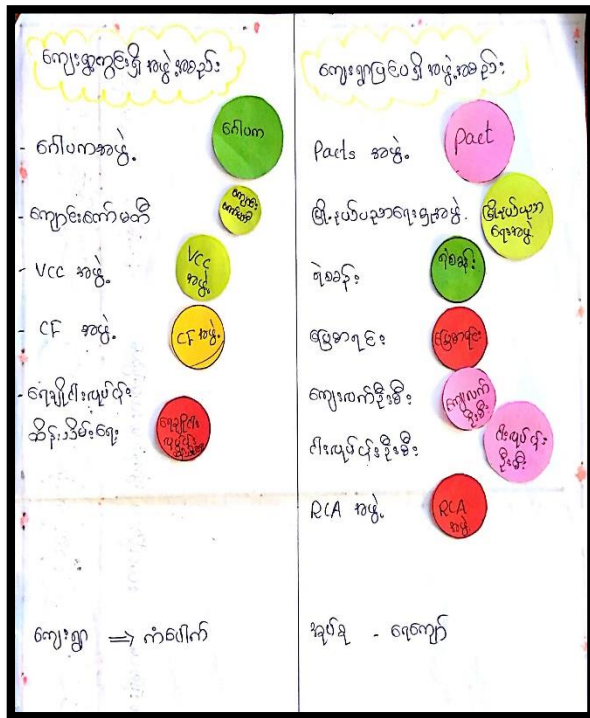 ကျေးရွာတွင်းရှိ အဖွဲ့အစည်း
- ဂေါပကအဖွဲ့
ဂေါပက
- ကျောင်းကော်မတီ
ကျောင်း
ကော်မတီ
- VCC အဖွဲ့
VCC
အဖွဲ့
- CF အဖွဲ့
CF အဖွဲ့
- ရေချိုငါးလုပ်ငန်း
ထိန်းသိမ်းရေး
ရေချိုငါး
လုပ်ငန်း
ကျေးရွာ ⇒ ကံပေါက်
ကျေးရွာပြင်ပရှိ အဖွဲ့အစည်း
Pacts အဖွဲ့
Pact
မြို့နယ်ပညာရေးမှူးအဖွဲ့
မြို့နယ်ပညာ
ရေးအဖွဲ့
ရဲစခန်း
ရဲစခန်း
မြေစာရင်း
မြေစာရင်း
ကျေးလက်ဦးစီး
ကျေးလက်
ဦးစီး
ငါးလုပ်ငန်းဦးစီး
ငါးလုပ်ငန်း
ဦးစီး
RCA အဖွဲ့
RCA
အဖွဲ့
အုပ်စု - ရေကျော်